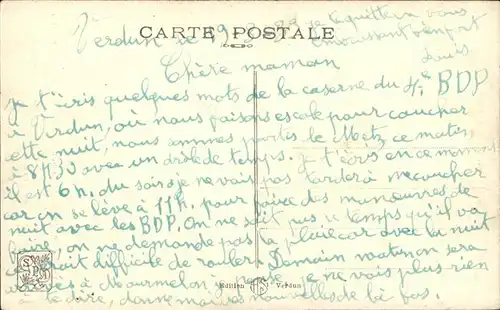 Verdun le 19
je te quitterai vous
embrassant bien fort
Louis
CARTE POSTALE
Chère maman
je t'écris quelques mots de la caserne du 4e BDP
à Verdun, où nous faisons escale pour coucher
cette nuit, nous sommes partis de Metz ce matin,
à 8H30 avec un drôle de temps. je t'écris en ce moment
il est 6h. du soir je ne vais pas tarder à me coucher
car on se lève à 11H, pour faire des manœuvres de
nuit avec les BDP. On ne sait pas le temps qu'il va
faire, on ne demande pas la pluie car avec la nuit
difficile de rouler. Demain matin on sera
à Mourmelon je ne vais plus rien
à te dire, donne moi des nouvelles de là bas.
Edition Verdun